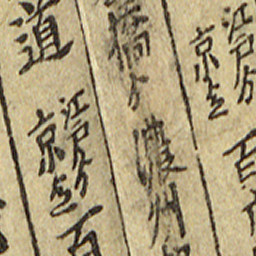 江戸ゟ
京迄
百
橋ゟ
濃州
道
江戸ゟ
京迄
百